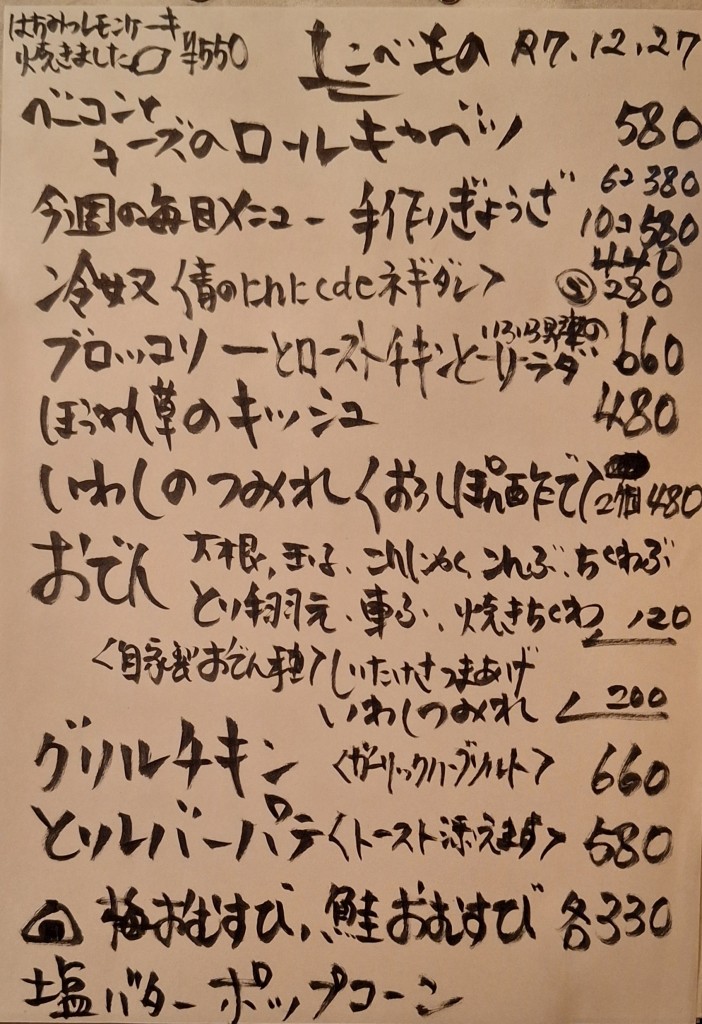 はちみつレモンケーキ
焼きました ¥550
たべもの R7.12.27
ベーコンと
チーズのロールキャベツ 580
今週の毎日メニュー 手作りぎょうざ 6コ380
10コ580
冷奴〈青のにんにくdeネギダレ〉 440
Ⓢ280
ブロッコリーとローストチキンと いろいろ野菜の サラダ 660
ほうれん草のキッシュ 480
いわしのつみれ〈おろしぽん酢で〉2個480
おでん 大根、玉子、こんにゃく、こんぶ、ちくわぶ
とり手羽元、車ふ、焼きちくわ 120
〈自家製おでん種〉しいたけさつまあげ
いわしつみれ 200
グリルチキン〈ガーリックハーブソルト〉 660
とりレバーパテ〈トースト添えます〉 580
梅おむすび、鮭おむすび 各330
塩バターポップコーン